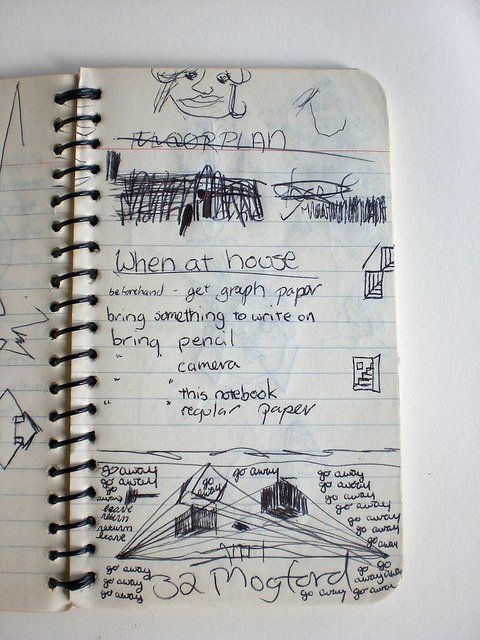 FLOORPLAN
When at house
beforehand - get graph paper
bring something to write on
bring pencil
" camera
" " this notebook
" " regular paper
go away go away go away
go away go away go away
go away go away go away
leave go away
return go away
return go away
leave go away
go away
go away go away
go away 32 Mogford go away
go away go away go away